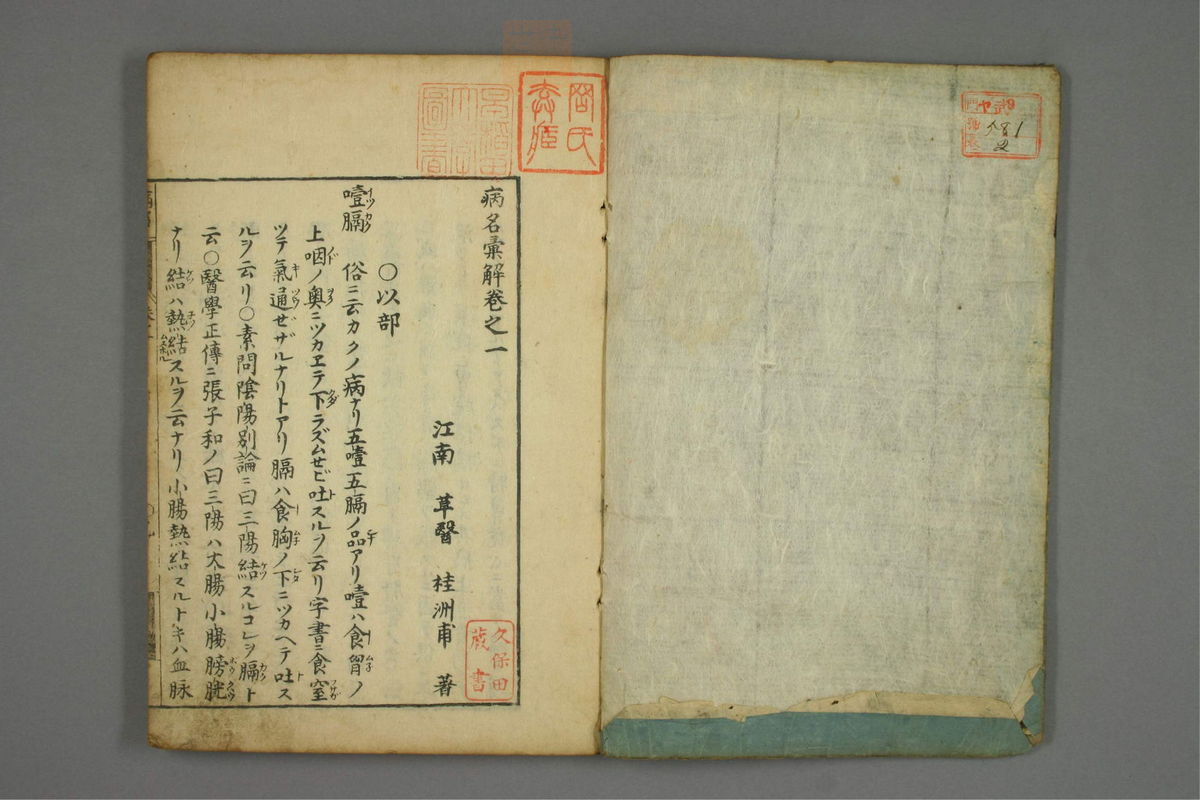 病名彙解卷之一
江南 草醫 桂洲甫 著
〇以部
噎膈 俗ニ云カクノ病ナリ五噎五膈ノ品アリ噎ハ食胷ノ
上咽ノ奥ニツカヱテ下ラズムせビ吐スルヲ云リ字書ニ食窒
ツテ氣通せザルナリトアリ膈ハ食胸ノ下ニツカヘテ吐ス
ルヲ云リ〇素問陰陽別論ニ曰三陽結スルコレヲ膈ト
云〇醫學正傳ニ張子和ノ曰三陽ハ大腸小腸膀胱
ナリ結ハ熱結スルヲ云ナリ小腸熱結スルトキハ血脉
久保田
蔵書
181
2